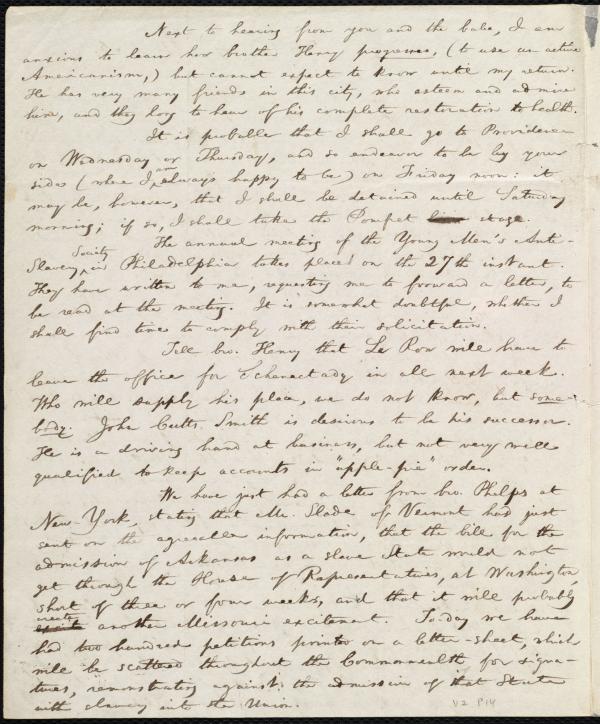 Next to hearing from you and the babe, I am
anxious to learn how brother Henry progresses, (to use an active
Americanism,) but cannot expect to know until my return.
He has very many friends in this city, who esteem and admire
him, and they long to hear of his complete restoration to health.
It is probable that I shall go to Providence
on Wednesday or Thursday, and so endeavor to be by your
side (where I am always happy to be) on Friday noon: it
may be, however, that I shall be detained until Saturday
morning; if so, I shall take the Pomfret stage.
The annual meeting of the Young Men's Anti-
Slavery Society in Philadelphia takes place on the 27th instant.
They have written to me, requesting me to forward a letter, to
be read at the meeting. It is somewhat doubtful, whether I
shall find time to comply with their solicitation.
Tell bro. Henry that Le Row will have to
leave the office for Schenectady in all next week.
Who will supply his place, we do not know, but some-
body. John Cutts Smith is desirous to be his successor.
He is a driving hand at business, but not very well
qualified to keep accounts in "apple-pie" order.
We have just had a letter from bro. Phelps at
New-York, stating that Mr. Slade of Vermont had just
sent on the agreeable information, that the bill for the
admission of Arkansas as a slave State would not
get through the House of Representatives, at Washington,
short of three or four weeks, and that it will probably
create another Missouri excitement. To-day we have
had two hundred petitions printed on a letter-sheet, which
will be scattered throughout the Commonwealth for signa-
tures, remonstrating against the admission of that State
with slavery into the Union.
V2 P14